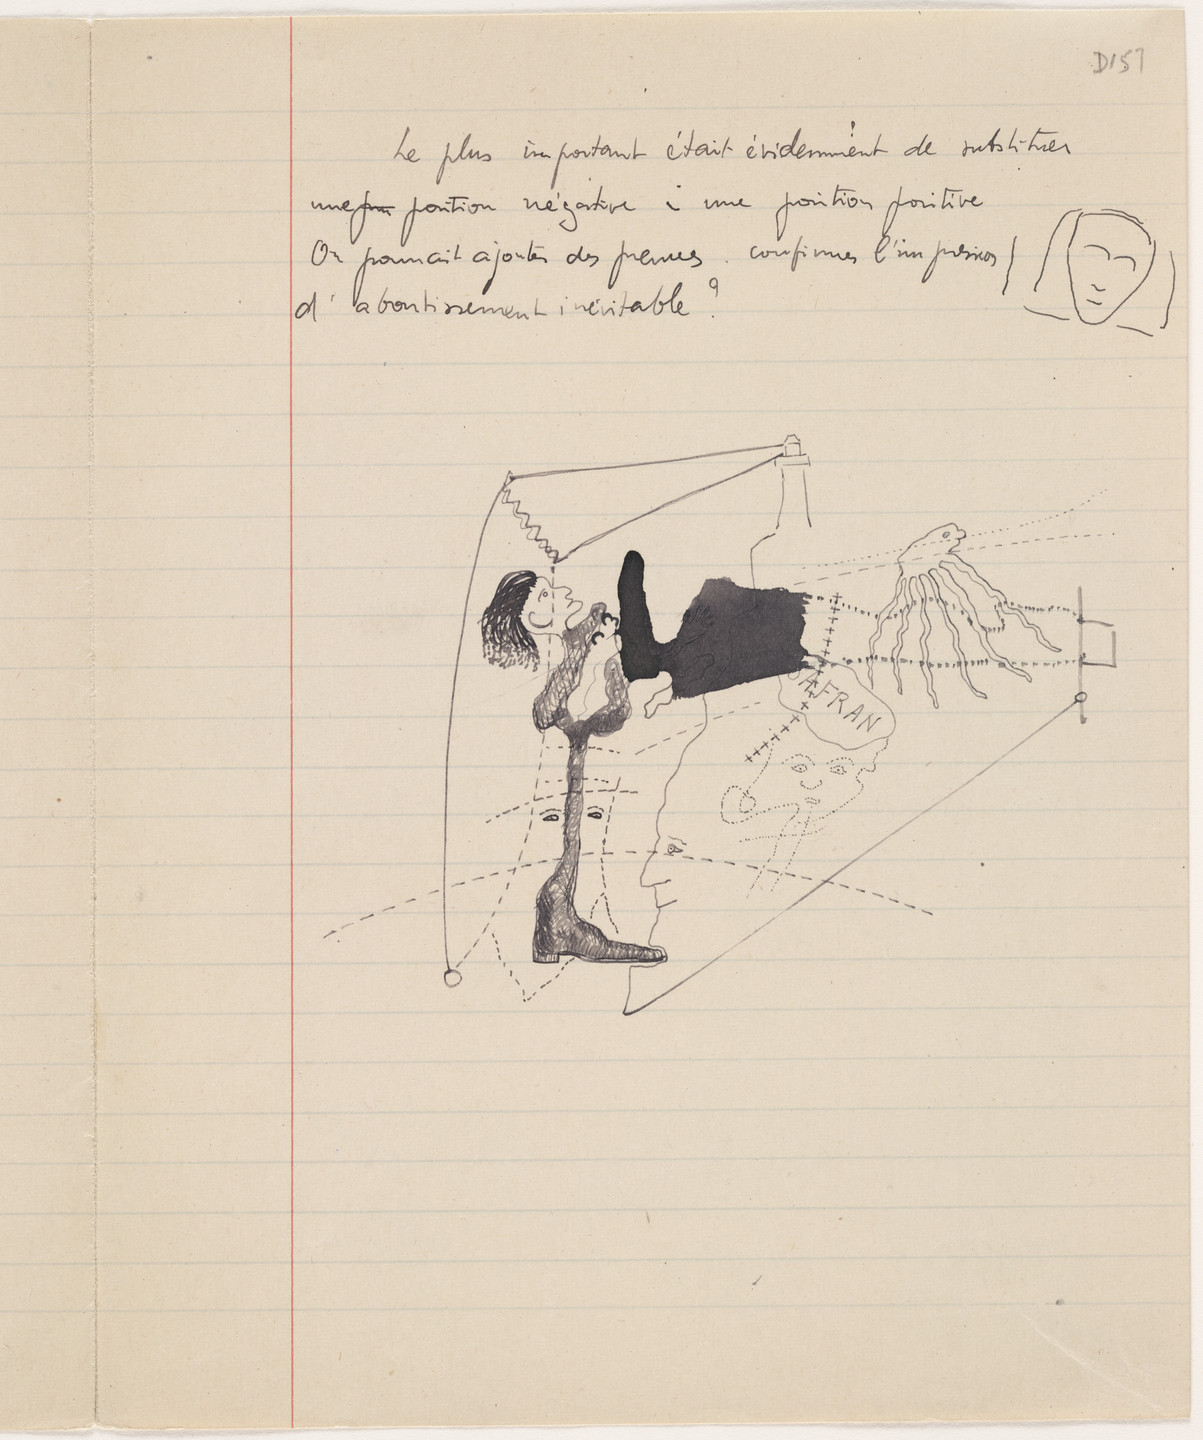 D157
Le plus important était évidemment de substituer
une position négative à une position positive
On pourrait ajouter des preuves. confirmer l'impression
d'aboutissement inévitable ?
AFRAN